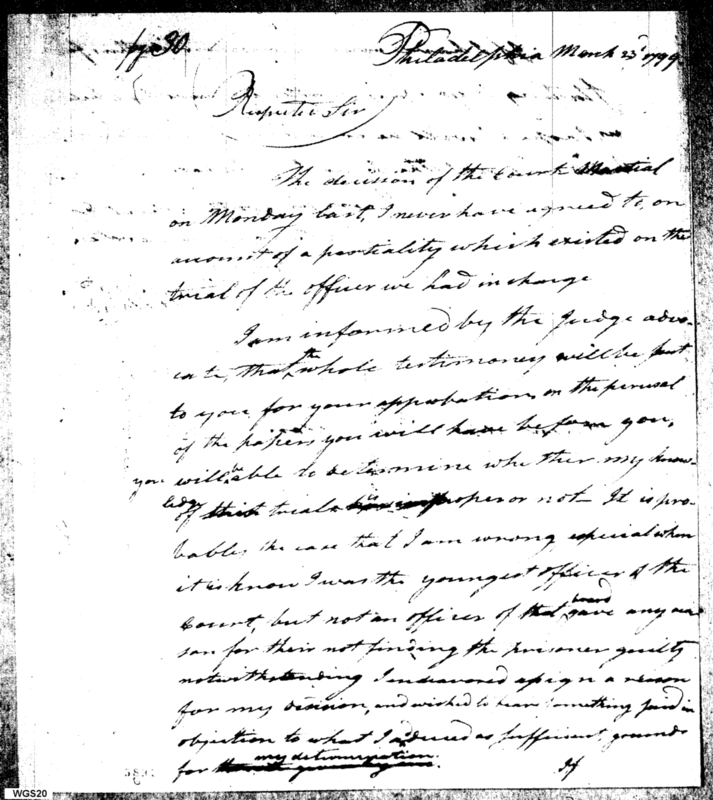 pg 30
Philadelphia March 23d 1799
Respected Sir
The decision of the Court Martial
on Monday last, I never have agreed to, on
account of a partiality which existed on the
trial of the officer we had in charge
I am informed by the Judge advo-
cate, that the whole testimoney will be put
to you for your approbation, on the perusal
of the papers you will have before you,
you will be able to determine whether my know-
ledge of trials is proper or not – It is pro-
bable, the case that I am wrong, especial when
it is know I was the youngest officer of the
Court, but not an officer of that board gave any rea
son for their not finding the prisoner guilty
notwithstanding I endeavored asign a reason
for my decision, and wished to hear something said in
objection to what I aduced as sufficient, grounds
for my determination.
If
WGS20